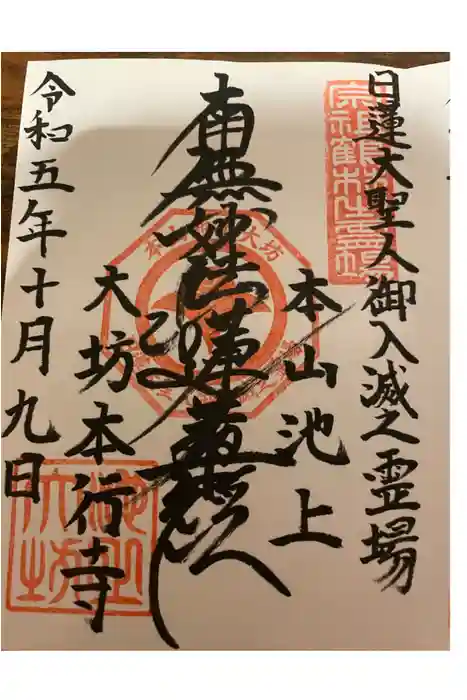 日蓮大聖人御入滅之霊場
本山池上
南無妙法蓮華経
大坊本行寺
令和五年十月九日